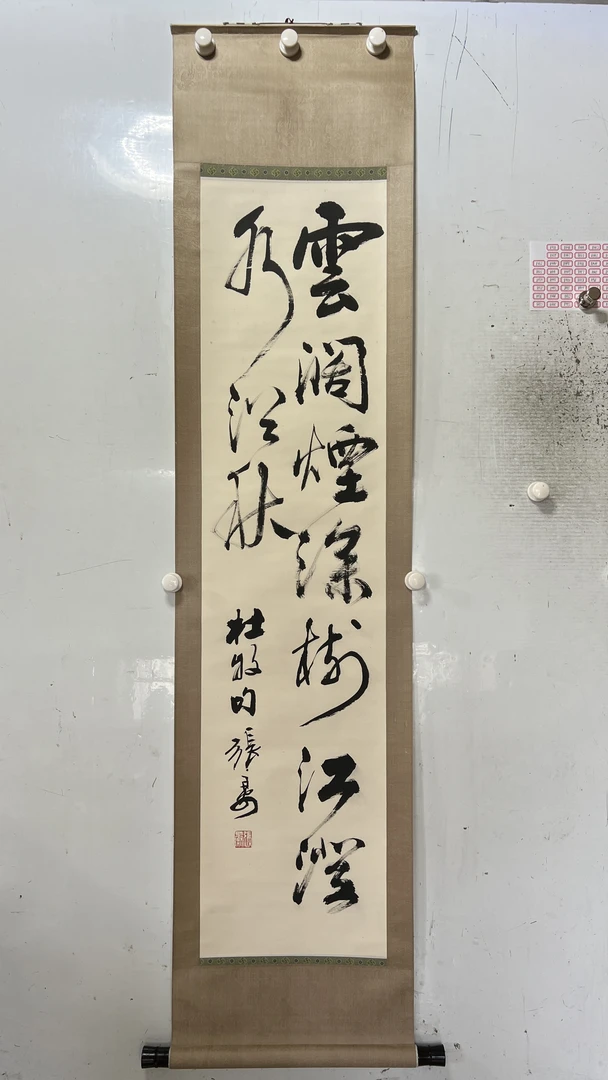 雲濶煙深樹江澄
水浴秋
杜牧句 張